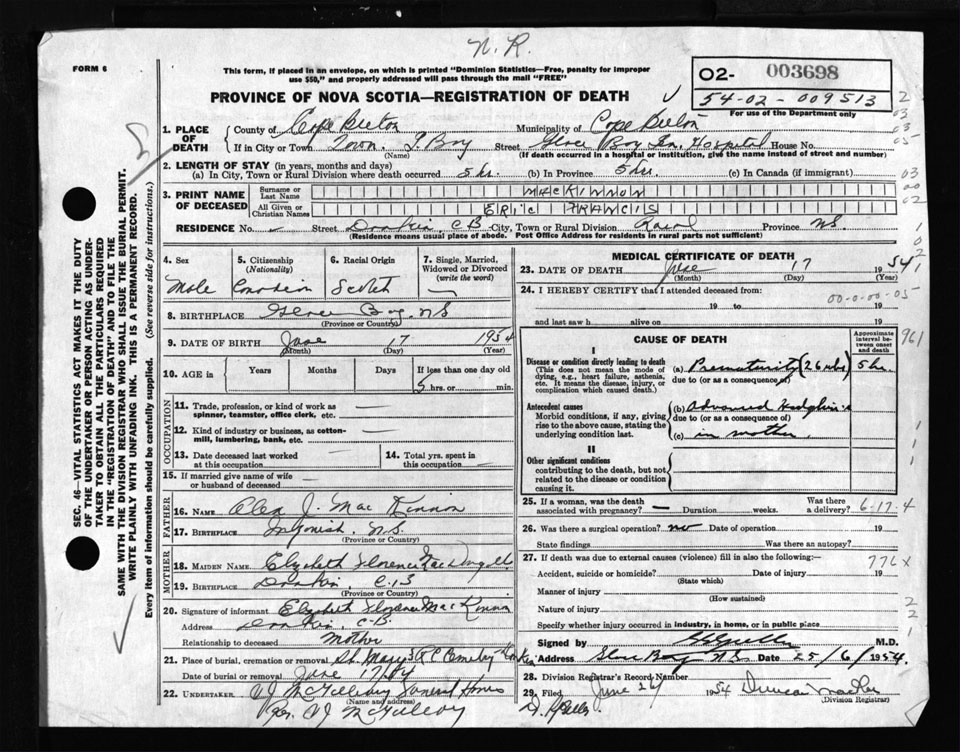 N. R.
FORM 6
This form, if placed in an envelope, on which is printed "Dominion Statistics—Free, penalty for improper
use $50," and properly addressed will pass through the mail "FREE"
PROVINCE OF NOVA SCOTIA—REGISTRATION OF DEATH
02- 003698
54-02-009513
For use of the Department only
1. PLACE OF DEATH
County of Cape Breton Municipality of Cape Breton
If in City or Town Town. G. Bay Street Glace Bay Gen. Hospital House No.
(Name) (If death occurred in a hospital or institution, give the name instead of street and number)
2. LENGTH OF STAY (in years, months and days)
(a) In City, Town or Rural Division where death occurred 5 hrs. (b) In Province 5 hrs. (c) In Canada (if immigrant)
3. PRINT NAME OF DECEASED
Surname or Last Name MACKINNON
All Given or Christian Names ERIC FRANCIS
RESIDENCE No. Street Donkin, C.B. City, Town or Rural Division Rural Province N.S.
(Residence means usual place of abode. Post Office Address for residents in rural parts not sufficient)
4. Sex Male
5. Citizenship (Nationality) Canadian
6. Racial Origin Scotch
7. Single, Married, Widowed or Divorced (write the word)
8. BIRTHPLACE Glace Bay, N.S.
(Province or Country)
9. DATE OF BIRTH June 17 1954
(Month) (Day) (Year)
10. AGE in Years Months Days If less than one day old
5 hrs. or min.
OCCUPATION
11. Trade, profession, or kind of work as spinner, teamster, office clerk, etc.
12. Kind of industry or business, as cotton-mill, lumbering, bank, etc.
13. Date deceased last worked at this occupation
14. Total yrs. spent in this occupation
15. If married give name of wife or husband of deceased
FATHER
16. NAME Alex J. MacKinnon
17. BIRTHPLACE Ingonish, N.S.
(Province or Country)
MOTHER
18. MAIDEN NAME Elizabeth Florence MacDougall
19. BIRTHPLACE Donkin, C.B.
(Province or Country)
20. Signature of informant Elizabeth Florence MacKinnon
Address Donkin, C.B.
Relationship to deceased Mother
21. Place of burial, cremation or removal St. Mary's R.C. Cemetery Donkin
Date of burial or removal June 17/54
22. UNDERTAKER V.J. McGillivray Funeral Home
(Name and address)
Per. V.J. McGillivray
MEDICAL CERTIFICATE OF DEATH
23. DATE OF DEATH June 17 1954
(Month) (Day)
24. I HEREBY CERTIFY that I attended deceased from:
19 to 19
and last saw h alive on 19
00-0-00-05
CAUSE OF DEATH
Approximate interval between onset and death
I
Disease or condition directly leading to death
(This does not mean the mode of dying, e.g., heart failure, asthenia, etc. It means the disease, injury, or complication which caused death.)
(a) Prematurity (26 wks) 5 hr.
due to (or as a consequence of)
Antecedent causes
Morbid conditions, if any, giving rise to the above cause, stating the underlying condition last.
(b) Advanced Hodgkin's
due to (or as a consequence of)
(c) in mother.
II
Other significant conditions
contributing to the death, but not related to the disease or condition causing it.
25. If a woman, was the death associated with pregnancy? Duration weeks. Was there a delivery? 6-17-4
26. Was there a surgical operation? no Date of operation 19
State findings Was there an autopsy?
27. If death was due to external causes (violence) fill in also the following:
776X
Accident, suicide or homicide? Date of injury 19
(State which)
Manner of injury
(How sustained)
Nature of injury
Specify whether injury occurred in industry, in home, or in public place
Signed by M.D.
Address Glace Bay N.S. Date 25/6/1954.
28. Division Registrar's Record Number
29. Filed June 26 1954 Duncan
(Division Registrar)
961
SEC. 46—VITAL STATISTICS ACT MAKES IT THE DUTY
OF THE UNDERTAKER OR PERSON ACTING AS UNDER-
TAKER TO OBTAIN ALL THE PARTICULARS REQUIRED
IN THE "REGISTRATION OF DEATH" AND TO FILE THE
SAME WITH THE DIVISION REGISTRAR WHO SHALL ISSUE THE BURIAL PERMIT.
WRITE PLAINLY WITH UNFADING INK. THIS IS A PERMANENT RECORD.
Every item of information should be carefully supplied. (See reverse side for instructions.)